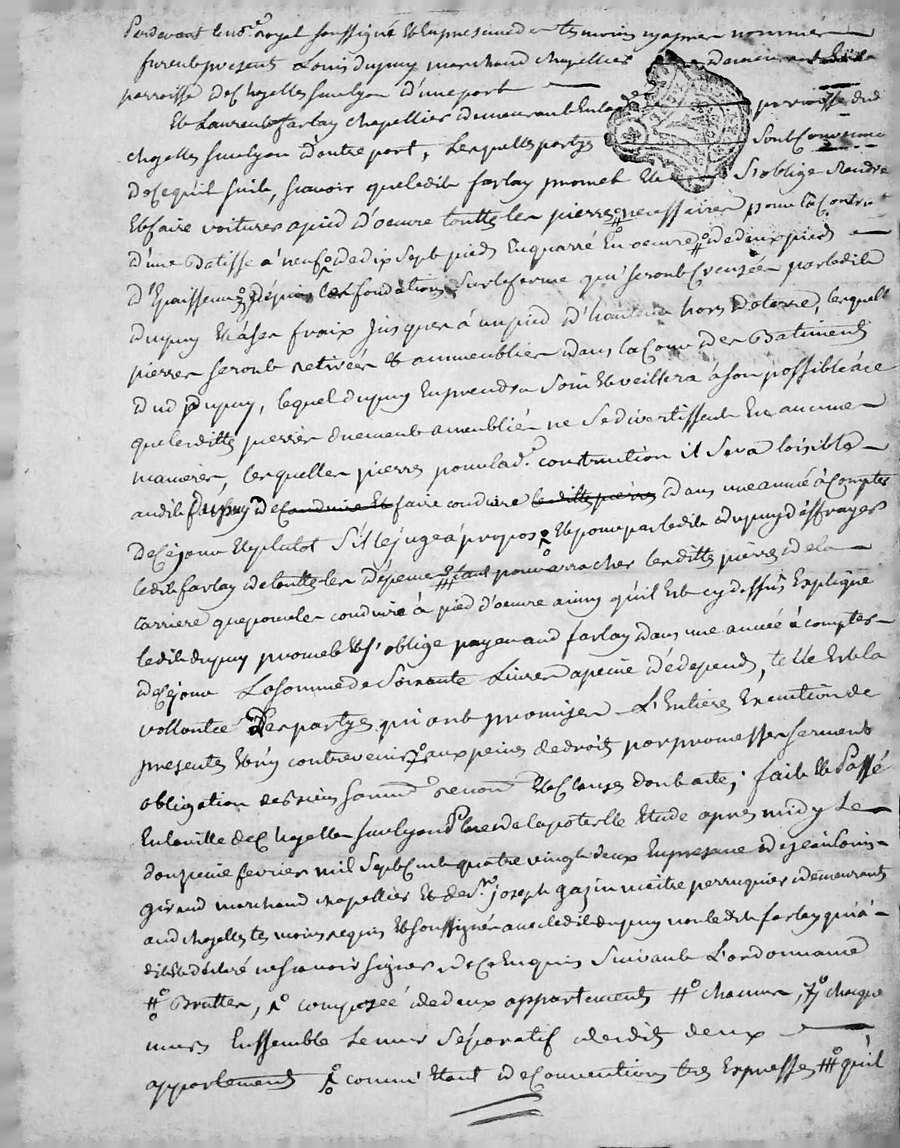 Pardevant le no.re royal soussigné et en presence des temoins cy apres nommés
furent present Louis dupuy marchand chapellier demeurant
parroisse de Chazelles sur Lyon d'une part
Et Laurent farlay chapellier demeurant en la parroisse dud
chazelles sur Lyon d'autre part, Lesquelles partyes sont convenues
de ce quil suit, scavoir que ledit farlay promet et s'oblige rendre
et faire voiturer a pied d'oeuvre touttes les pierres #° necessaires pour la Const.on
d'une Batisse a neuf de dix sept pieds en quarré en oeuvre #° de deux pieds
d'Epaisseur depuis les fondations sur le ferme qui seront creusées par ledit
dupuy et a ses fraix jusques à un pied d'hauteur hors de terre, lesquelles
pierres seront retirées et ammeublies dans la Cour des Batiments
dud dupuy, lequel dupuy en prendra soin et veillera à son possible à ce
que lesdittes pierres duement ameublies ne se divertissent en aucune
manieres, lesquelles pierres pour lad.e construction il sera loisible
audit dupuy de conduire et faire conduire lesdittes pierres dans une année à compter
de ce jour et plutot s'il le juge à propos et pour par ledit dupuy deffrayer
ledit farlay de touttes les depense pour arracher lesdittes pierres de la
carriere que pour les conduire à pied d'oeuvre ainsy qu'il est cy dessus Expliqué
ledit dupuy promet et s'oblige payer aud farlay dans une année à compter
de ce jour La somme de Soixante Livres a peine de depends, telle est la
vollontée des partyes qui ont promises L'Entiere Execution des
presentes et n'y contrevenir aux peines de droit par promesses serment
obligation des biens soum.on renon.on et Clauses dont acte; fait et Passé
En la ville de Chazelles sur Lyon Place de la poterlle Etude apres midy Le
douzieme fevrier mil sept cent quatre vingt deux En presence de jean Louis
giraud marchand chapellier et de s.r joseph gazin maitre perruquier demeurants
aud chazelles temoins requis et soussignés avec ledit dupuy non ledit farlay qui a
dit et declaré ne scavoir signer de ce Enquis suivant L'ordonnance
#° Bruttes, composée de deux appartements #° chacun, 7° chaque
murs Enssemble Le mur séparatif desdit deux
appartement comm' Etant de Conventions tres Expresses ##° qu'il